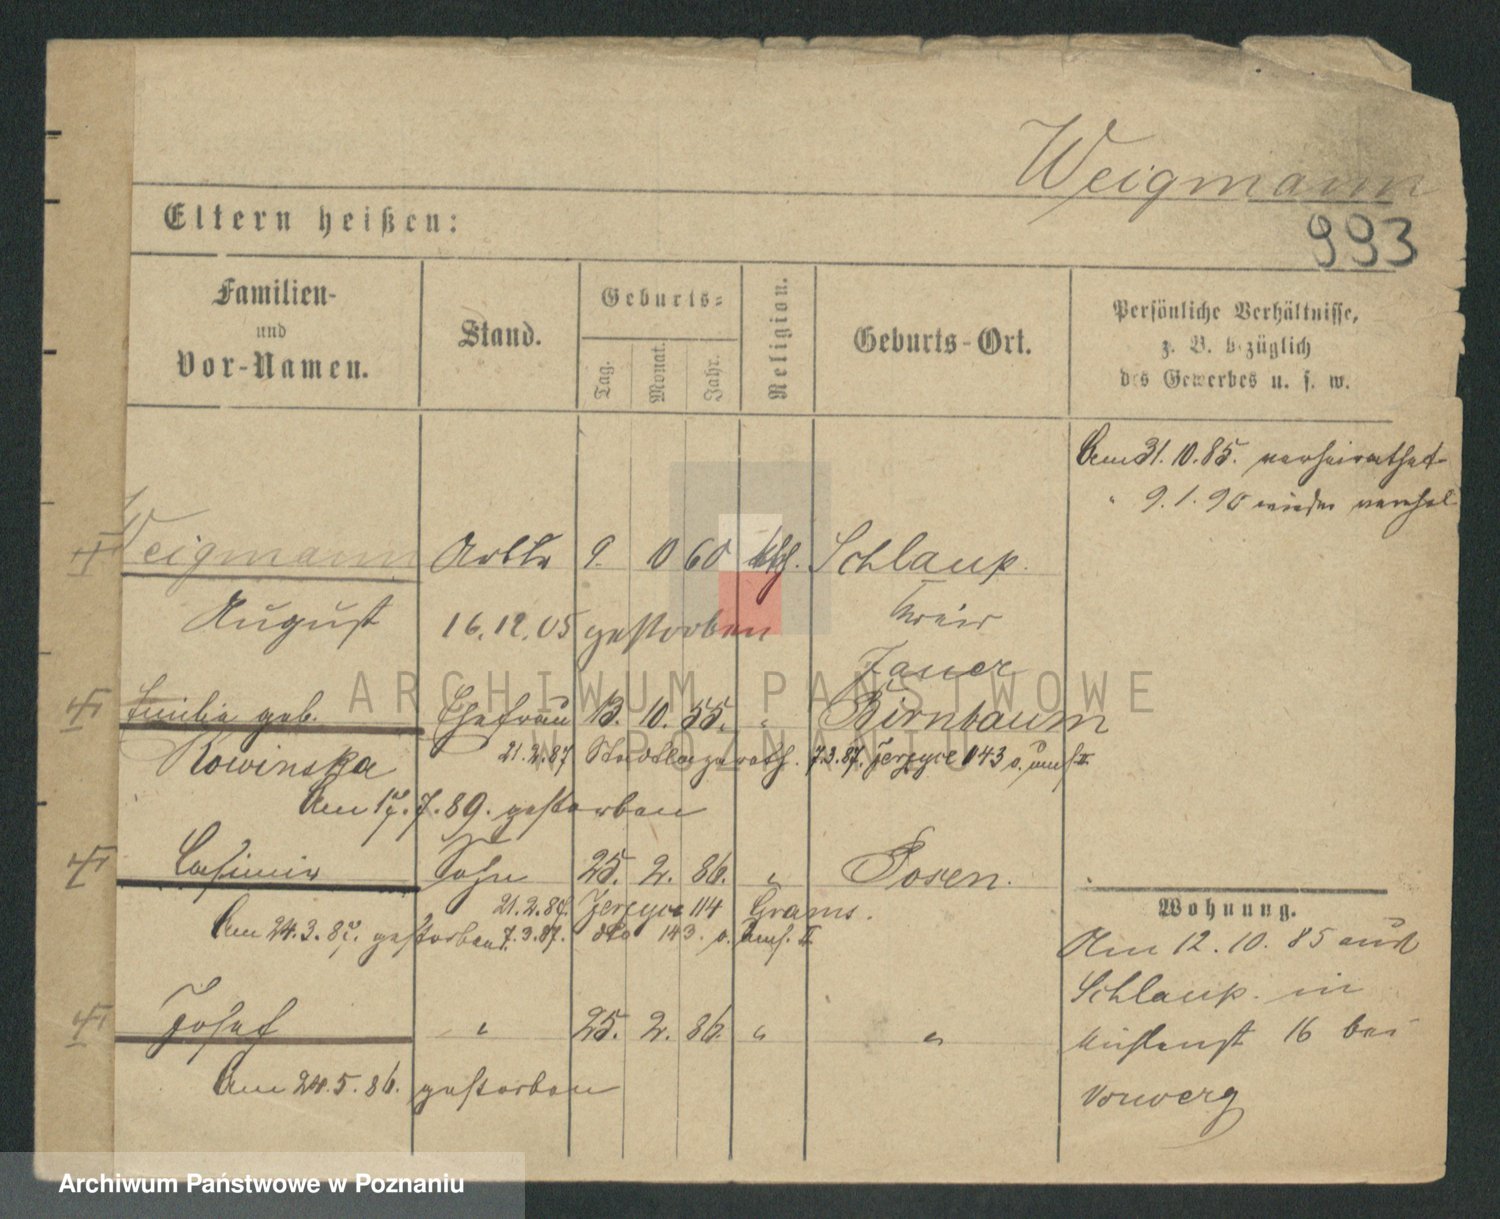 Weigmann
993
Eltern heißen:
Familien-
und
Vor-Namen.
Stand.
Geburts-
Tag.
Monat.
Jahr.
Religion.
Geburts-Ort.
Persönliche Verhältnisse,
z. B. bezüglich
des Gewerbes u. s. w.
Am 31. 10. 85. verheirathet
" 9. 1. 90 wieder
Weigmann Arbtr 9. 10 60 kth. Schlaup.
August 16. 12. 05 gestorben Kreis
Jauer
Emilie geb. Ehefrau 13. 10. 55. " Birnbaum
Rowinska 21. 2. 87 Stadtlazareth. 7.3.87. Jerzyce 143 v. Umf. II.
Am 17. 7. 89. gestorben
Casimir Sohn 25. 2. 86. " Posen.
21. 2. 87. Jerzyce 114 Grams.
Am 24. 3. 87. gestorben 7. 3. 87. dto 143. v. Umf. II.
Josef " 25. 2. 86. " "
Am 24. 5. 86. gestorben
Wohnung.
Am 12. 10. 85 aus
Schlaup. in
16 bei
Vorwerg
ARCHIWUM PAŃSTWOWE
W POZNANIU
Archiwum Państwowe w Poznaniu